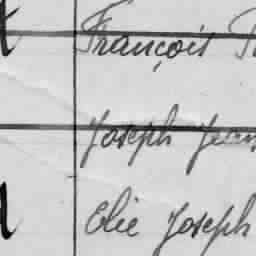 François
Joseph Jean
Elie Joseph